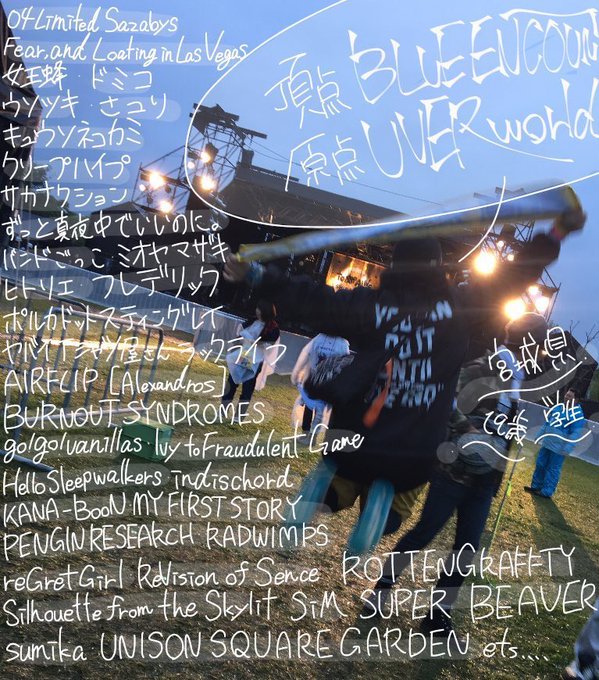 04 Limited Sazabys
Fear, and Loating in Las Vegas
女王蜂・ドミコ
ウソツキ・さユり
キュウソネコカミ
クリープハイプ
サカナクション
ずっと真夜中でいいのに。
バンドごっこ ミオヤマザキ
ヒトリエ・フレデリック
ポルカドットスティングレイ
ヤバイTシャツ屋さん ラックライフ
AIRFLIP [Alexandros]
BURNOUT SYNDROMES
go!go!vanillas・Ivy to Fraudulent Game
Hello Sleepwalkers indischord
KANA-BOON MY FIRST STORY
PENGIN RESEARCH RADWIMPS
reGretGirl ReVision of Sence ROTTENGRAFFTY
Silhouette from the Skylit SiM SUPER BEAVER
sumika UNISON SQUARE GARDEN ets....
頂点 BLUE ENCOUN
原点 UVERworld
YOU CAN
DO IT
UNTIL
宮城県
19歳 学生